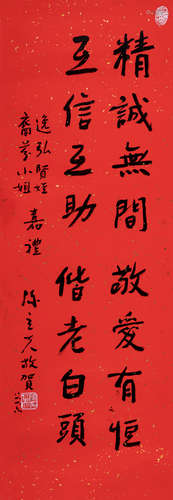 精誠無間敬愛有恒
互信互助偕老白頭
逸弘賢姪
裔芬小姐 嘉禮
陳立夫敬賀